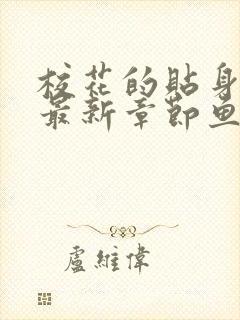 校花的貼身
最新章節魚
盧維偉